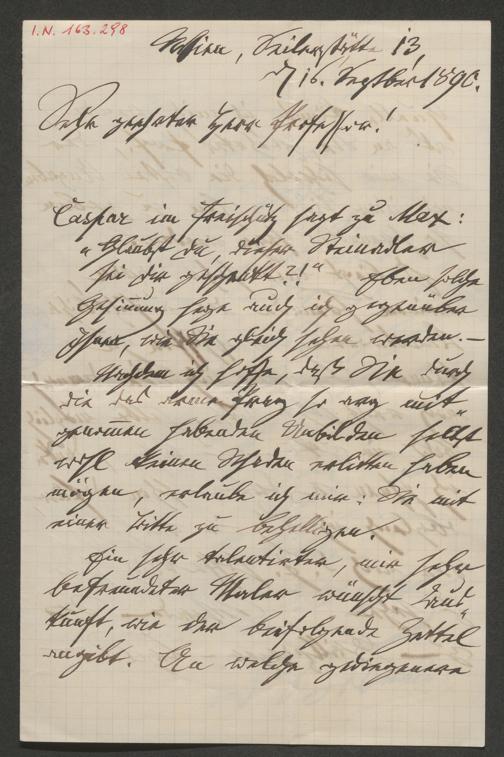 I.N. 163.298
Wien, Seilerstätte 13,
d 16. September 1890.
Sehr geehrter Herr Professor!
Caspar im Freischütz sagt zu Max:
"Glaubst Du, dieser Steinadler
sei dir geschenkt?!" Eben solche
Gesinnung hege auch ich gegenüber
Ihnen, wie Sie gleich sehen werden. —
Nachdem ich hoffe, daß Sie durch
die das arme Prag so arg mit-
genommen habenden Unbilden selbst
wohl keinen Schaden erlitten haben
mögen, erlaube ich mir: Sie mit
einer Bitte zu behelligen.
Ein sehr talentirter, mir sehr
befreundeter Maler wünscht Aus-
kunft, wie der beifolgende Zettel
angibt. An welche gediegenere